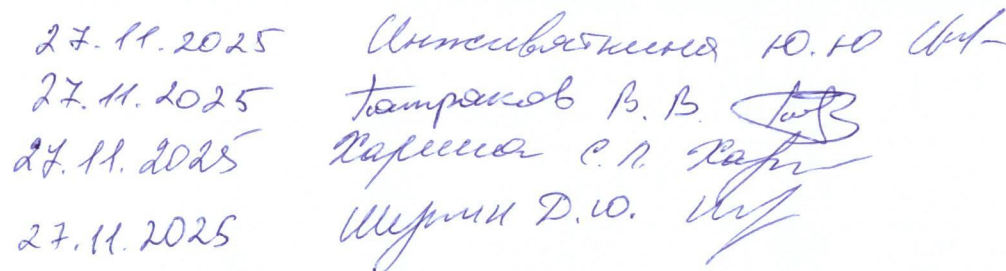 27.11.2025 Инживаткина Ю.Ю
27.11.2025 Патраков В.В.
27.11.2025 Харина С.Л.
27.11.2025 Шурмин Д.Ю.